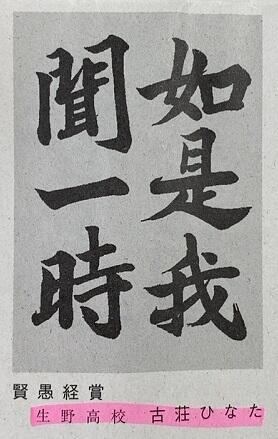 如是我
聞一時
賢愚経賞
生野高校 古荘ひなた